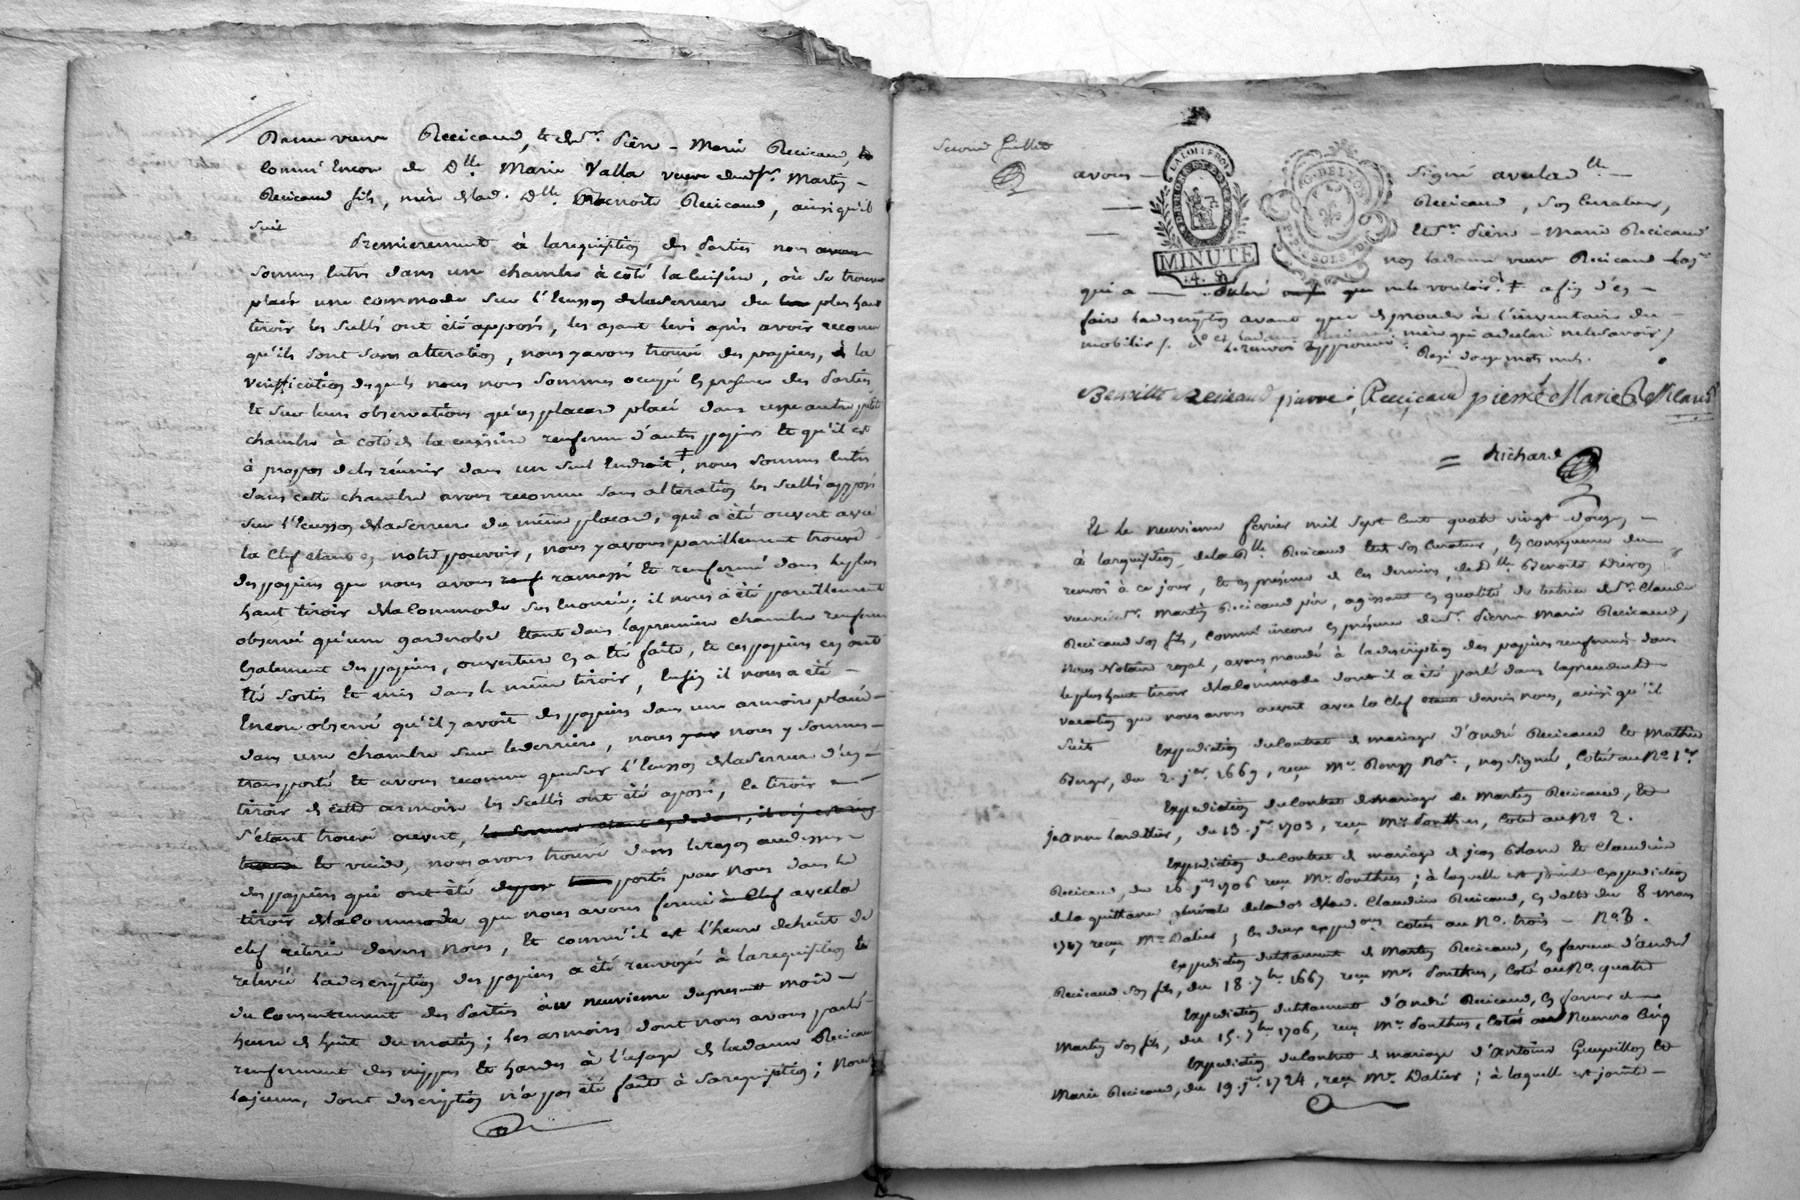 Dame veuve Recicaud, & du Sr. Pierre-Marie Recicaud, &
Comm'encore de Dlle Marie Valla veuve dud. Sr. Martin
Recicaud fils, mere de lad. Dlle. Benoite Recicaud, ainsi qu'il
suit
Premierement à la requisition des Parties nous avons
sommes entrés dans une chambre à côté la cuisine, où se trouve
placée une commode sur l'Ecusson de la serrure du plus haut
tiroir les scellés ont été apposés, les ayant levé après avoir reconnu
qu'ils sont sans alteration, nous y avons trouvé des papiers, à la
verification desquels nous nous sommes occupé en presence des Parties
Et sur leurs observations qu'un placard placé dans une autre petite
chambre à coté de la cuisine renferme d'autres papiers Et qu'il est
à propos de les réunir dans un seul Endroit, nous sommes Entrés
dans cette chambre avons reconnu sans alteration les scellés apposés
sur l'Ecusson de la serrure du même placard, qui a été ouvert avec
la Clef étant en notre pouvoir, nous y avons pareillement trouvé
des papiers que nous avons ramassé Et renfermé dans le plus
haut tiroir de la Commode sus Enoncée; il nous a été pareillement
observé qu'une garderobe Etant dans la premiere chambre renferme
Egalement des papiers, ouverture en a Eté faite, & ces papiers en ont
Eté sortis Et mis dans le même tiroir, Enfin il nous a été
Encore observé qu'il y avoit des papiers dans une armoire placée
dans une chambre sur le derriere, nous y nous y sommes
transporté Et avons reconnu que sur l'Ecusson de la serrure d'un
tiroir de cette armoire les scellés ont été aposés, le tiroir
s'étant trouvé ouvert,
Et vuide, nous avons trouvé dans le rayon au dessus
des papiers qui ont été portés par nous dans le
tiroir de la Commode que nous avons fermé à Clef avec la
clef retirée devers nous, Et comm'il est l'heure de huit de
relevée la description des papiers a été renvoyée à la requisition &
du Consentement des Parties au neuvieme du present mois
heure de huit du matin; les armoires dont nous avons parlé
renferment des nippes Et hardes à l'usage de la dame Recicaud
lajeune, dont description n'a pas été faite à sa requisition; Nous
Second feuillet
GATTELLION
MINUTE
4. S
G. DE LYON
avons signé avec lad. lle
Recicaud, son Curateur,
Et Sr. Pierre-Marie Recicaud
non la dame veuve Recicaud
qui a declaré ne le vouloir afin d'en
faire la description avant que de proceder à l'inventaire du
mobilier
le renvoi approuvé. Rayé douze mots nuls.
Benoitte Reicaud pierre Recicaud pierre Marie R
Richard
Et le neuvieme fevrier mil sept cent quatre vingt douze,
à la requisition de la Dlle Recicaud Et de son Curateur, en consequence du
renvoi à ce jour, Et en présence de ces derniers, de Dlle Benoite Drivon
veuve de Sr. Martin Recicaud pere, agissant en qualité de tutrice de Sr. Claude
Recicaud son fils, comm'encore en présence du Sr. Pierre Marie Recicaud,
Nous Notaire royal, avons procedé à la description des papiers renfermés dans
le plus haut tiroir de la Commode dont il a été parlé dans la precedente
vacation que nous avons ouvert avec la Clef devers nous, ainsi qu'il
suit
Expedition du Contrat de mariage d'andré Recicaud & Mathie
Berger, du 2. jer. 1669, reçu Me. Not., non signé, Coté au No. 1er
Expedition du Contrat de mariage de Martin Recicaud, Et
jeanne Landhier, du 13. jer 1703, reçu Me. Ponthus, Coté au No. 2.
Expedition du Contrat de mariage de jean Et Claudine
Recicaud, du 26 1706 reçu Me. Ponthus; à laquelle est jointe expedition
de la quittance générale de la dot de lad. Claudine Recicaud, en datte du 8 mars
1707 reçu Me. Dalier; les deux exped.ons cotées au No. trois - No. 3.
Expedition du testament de Martin Recicaud, en faveur d'andré
Recicaud son fils, du 18. 7bre 1667 reçu Me. Ponthus, Coté au No. quatre
Expedition du testament d'andré Recicaud, en faveur de
Martin son fils, du 15. 7bre 1706, reçu Me. Ponthus, Cotée au Numero Cinq
Expedition du Contrat de mariage d'antoine Et
Marie Recicaud, du 19. jer. 1724, reçu Me. Dalier; à laquelle est jointe